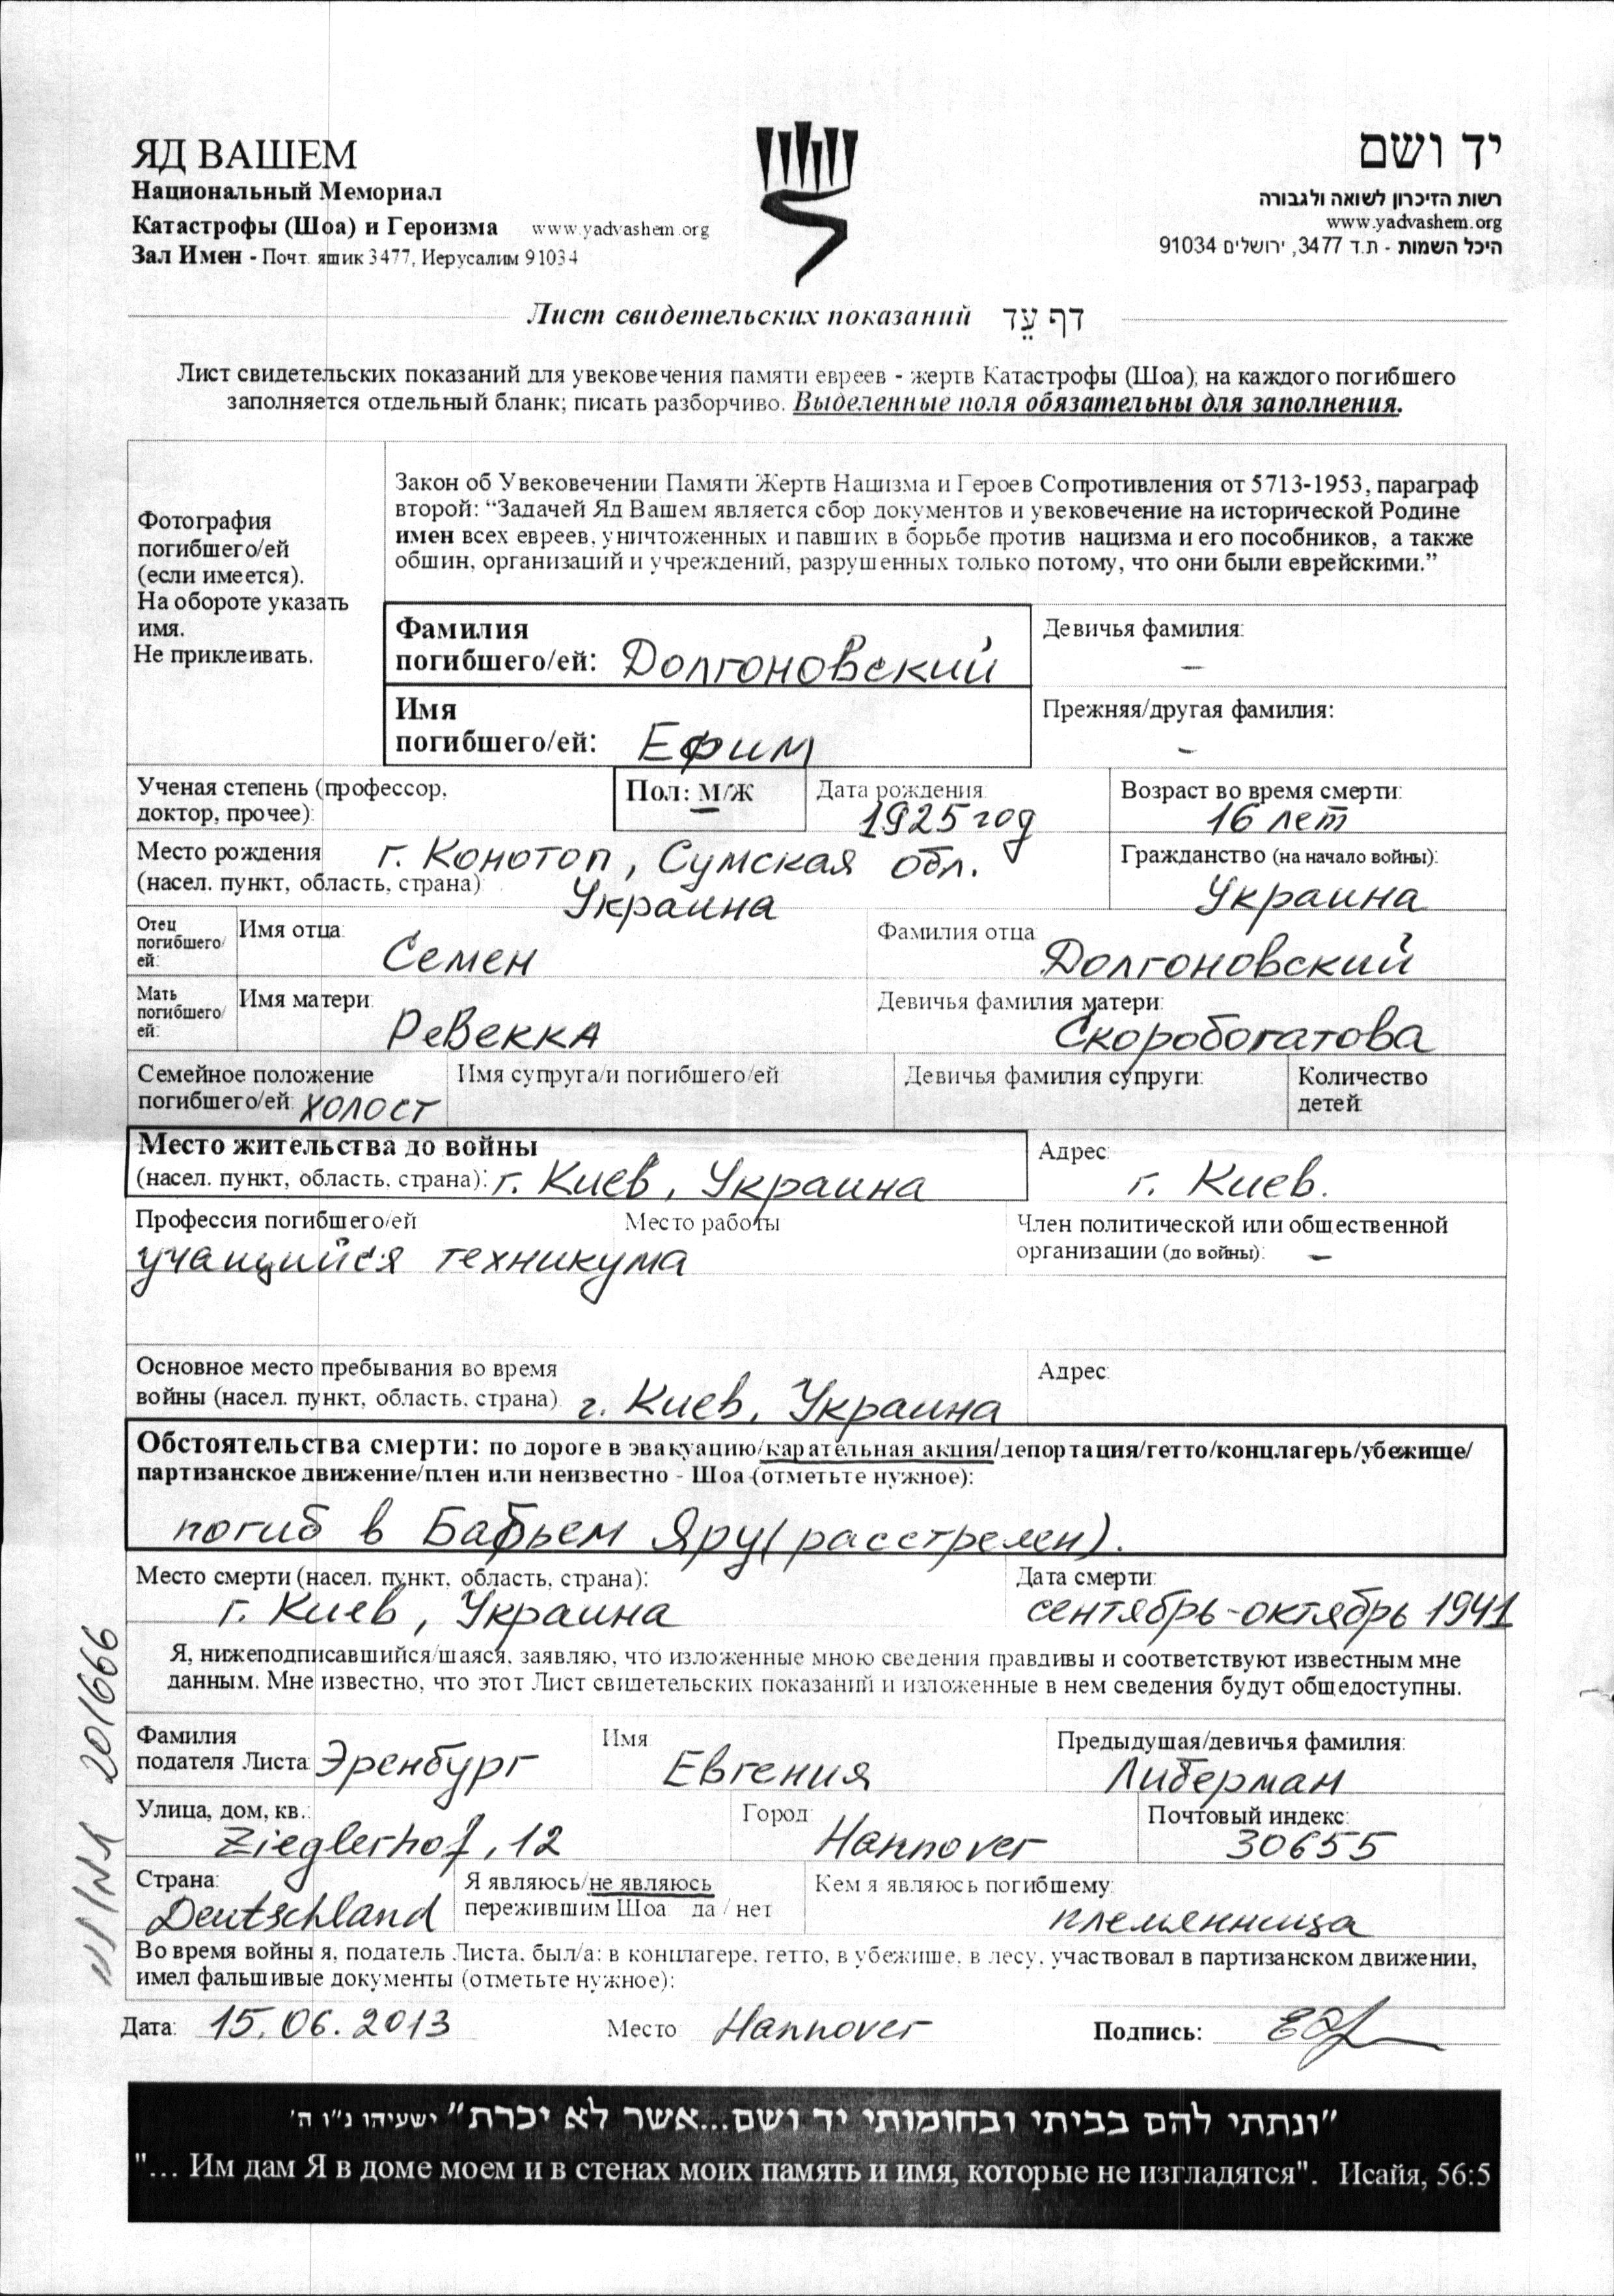 ЯД ВАШЕМ
Национальный Мемориал
Катастрофы (Шоа) и Героизма www.yadvashem.org
Зал Имен - Почт. ящик 3477, Иерусалим 91034
יד ושם
רשות הזיכרון לשואה ולגבורה
www.yadvashem.org
היכל השמות - ת.ד 3477, ירושלים 91034
Лист свидетельских показаний דף עֵד
Лист свидетельских показаний для увековечения памяти евреев - жертв Катастрофы (Шоа); на каждого погибшего
заполняется отдельный бланк; писать разборчиво. Выделенные поля обязательны для заполнения.
Фотография
погибшего/ей
(если имеется).
На обороте указать
имя.
Не приклеивать.
Закон об Увековечении Памяти Жертв Нацизма и Героев Сопротивления от 5713-1953, параграф
второй: “Задачей Яд Вашем является сбор документов и увековечение на исторической Родине
имен всех евреев, уничтоженных и павших в борьбе против нацизма и его пособников, а также
общин, организаций и учреждений, разрушенных только потому, что они были еврейскими.”
Фамилия
погибшего/ей: Долгоновский
Девичья фамилия:
–
Имя
погибшего/ей: Ефим
Прежняя/другая фамилия:
–
Ученая степень (профессор,
доктор, прочее):
Пол: М/Ж
Дата рождения:
1925 год
Возраст во время смерти:
16 лет
Место рождения г. Конотоп, Сумская обл.
(насел. пункт, область, страна): Украина
Гражданство (на начало войны):
Украина
Отец
погибшего/
ей:
Имя отца:
Семен
Фамилия отца:
Долгоновский
Мать
погибшего/
ей:
Имя матери:
Ревекка
Девичья фамилия матери:
Скоробогатова
Семейное положение
погибшего/ей: холост
Имя супруга/и погибшего/ей:
Девичья фамилия супруги:
Количество
детей:
Место жительства до войны
(насел. пункт, область, страна): г. Киев, Украина
Адрес:
г. Киев.
Профессия погибшего/ей Место работы
учащийся техникума
Член политической или общественной
организации (до войны): –
Основное место пребывания во время
войны (насел. пункт, область, страна) г. Киев, Украина
Адрес:
Обстоятельства смерти: по дороге в эвакуацию/карательная акция/депортация/гетто/концлагерь/убежище/
партизанское движение/плен или неизвестно - Шоа (отметьте нужное):
погиб в Бабьем Яру (расстрелен).
Место смерти (насел. пункт, область, страна):
г. Киев, Украина
Дата смерти:
сентябрь-октябрь 1941
Я, нижеподписавшийся/шаяся, заявляю, что изложенные мною сведения правдивы и соответствуют известным мне
данным. Мне известно, что этот Лист свидетельских показаний и изложенные в нем сведения будут общедоступны.
Фамилия
подателя Листа: Эренбург
Имя
Евгения
Предыдущая/девичья фамилия:
Либерман
Улица, дом, кв.:
Zieglerhof, 12
Город:
Hannover
Почтовый индекс:
30655
Страна:
Deutschland
Я являюсь/не являюсь
пережившим Шоа да / нет
Кем я являюсь погибшему:
племянница
Во время войны я, податель Листа, был/а: в концлагере, гетто, в убежище, в лесу, участвовал в партизанском движении,
имел фальшивые документы (отметьте нужное):
Дата: 15.06.2013 Место Hannover Подпись:
201666
"ונתתי להם בביתי ובחומותי יד ושם...אשר לא יכרת" ישעיהו נ"ו ה'
"... Им дам Я в доме моем и в стенах моих память и имя, которые не изгладятся". Исайя, 56:5